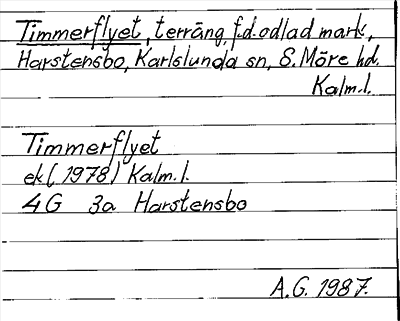 Timmerflyet, terräng, f.d. odlad mark,
Harstensbo, Karlslunda sn, S. Möre hd.
Kalm. l.
Timmerflyet
ek (1978) Kalm. l.
4G 3a Harstensbo
A.G. 1987.